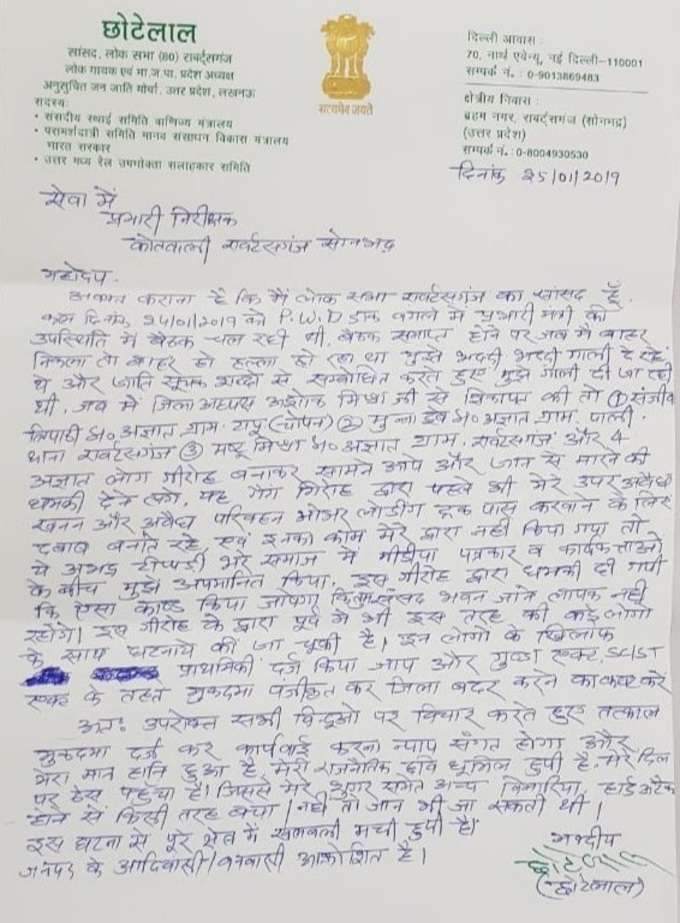 छोटेलाल
सांसद, लोक सभा (80) राबर्ट्सगंज
लोक गायक एवं भा.ज.पा. प्रदेश अध्यक्ष
अनुसूचित जन जाति मोर्चा, उत्तर प्रदेश, लखनऊ
सदस्यः
• संसदीय स्थाई समिति वाणिज्य मंत्रालय
• परामर्शदात्री समिति मानव संसाधन विकास मंत्रालय
भारत सरकार
• उत्तर मध्य रेल उपभोक्ता सलाहकार समिति
सत्यमेव जयते
दिल्ली आवास :
70, नार्थ एवेन्यू, नई दिल्ली-110001
सम्पर्क नं. : 0-9013869483
क्षेत्रीय निवास :
ब्रहम नगर, राबर्ट्सगंज (सोनभद्र)
(उत्तर प्रदेश)
सम्पर्क नं.: 0-8004930530
दिनांक 25/01/2019
सेवा में
प्रभारी निरीक्षक
कोतवाली राबर्टसगंज सोनभद्र
महोदय.
अवगत कराना है कि मैं लोक सभा राबर्टसगंज का सांसद हूँ.
कल दिनांक 24/01/2019 को P.W.D डाक बंगले में प्रभारी मंत्री की
उपस्थिति में बैठक चल रही थी. बैठक समाप्त होने पर जब मै बाहर
निकला तो बाहर हो हल्ला हो रहा था मुझे भददी भददी गाली दे रहे
थे और जाति सूचक शब्दो से सम्बोधित करते हुए मुझे गाली दी जा रही
थी. जब में जिला अध्यक्ष अशोक मिश्रा जी से शिकायत की तो ① संजीव
त्रिपाठी s/० अज्ञात ग्राम. (चोपन) ② मुन्ना s/० अज्ञात ग्राम.
थाना राबर्टसगंज ③ मिश्रा s/० अज्ञात ग्राम. राबर्टसगंज और 4
अज्ञात लोग गीरोह बनाकर सामने आये और जान से मारने की
धमकी देने लगे. यह गैंग गिरोह द्वारा पहले भी मेरे उपर अवैध
खनन और अवैध परिवहन ओभर लोडींग ट्रक पास करवाने के लिए
दबाव बनाते रहे एवं इनका काम मेरे द्वारा नही किया गया तो
ये अभद्र टीप्पड़ी भरे समाज में मीडीया पत्रकार व कार्यकर्ताओ
के बीच मुझे अपमानित किया. इस गीरोह द्वारा धमकी दी गयी
कि एसा काण्ड किया जायेगा कि तुम संसद भवन जाने लायक नही
रहोगे। इस गीरोह के द्वारा पूर्व में भी इस तरह की कई लोगो
के साथ घटनाये की जा चूकी है। इन लोगो के खिलाफ
प्राथमिकी दर्ज किया जाय और गुण्डा एक्ट, SC/ST
एक्ट के तहत मुकदमा पंजीकृत कर जिला बदर करने का कष्ट करे
अतः उपरोक्त सभी विन्दूओ पर विचार करते हुए तत्काल
मुकदमा दर्ज कर कार्यवाई करना न्याय संगत होगा और
मेरा मान हानि हुआ है. मेरी राजनैतिक छवि धूमिल हुयी है. मेरे दिल
पर ठेस पहुंचा है। जिससे मेरे शुगर समेत अन्य बिमारिया. हार्ड अटैक
होने से किसी तरह बचा। नहीं तो जान भी जा सकती थी।
इस घटना से पूरे क्षेत्र में खलबली मची हुयी है।
जनपद के आदिवासी/वनवासी आक्रोशित है।
भवदीय
छोटेलाल
(छोटेलाल)